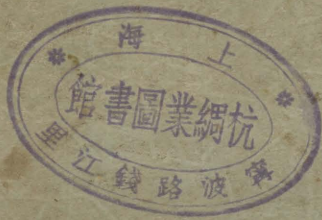 上海
杭綢業圖書館
寗波路錢江里